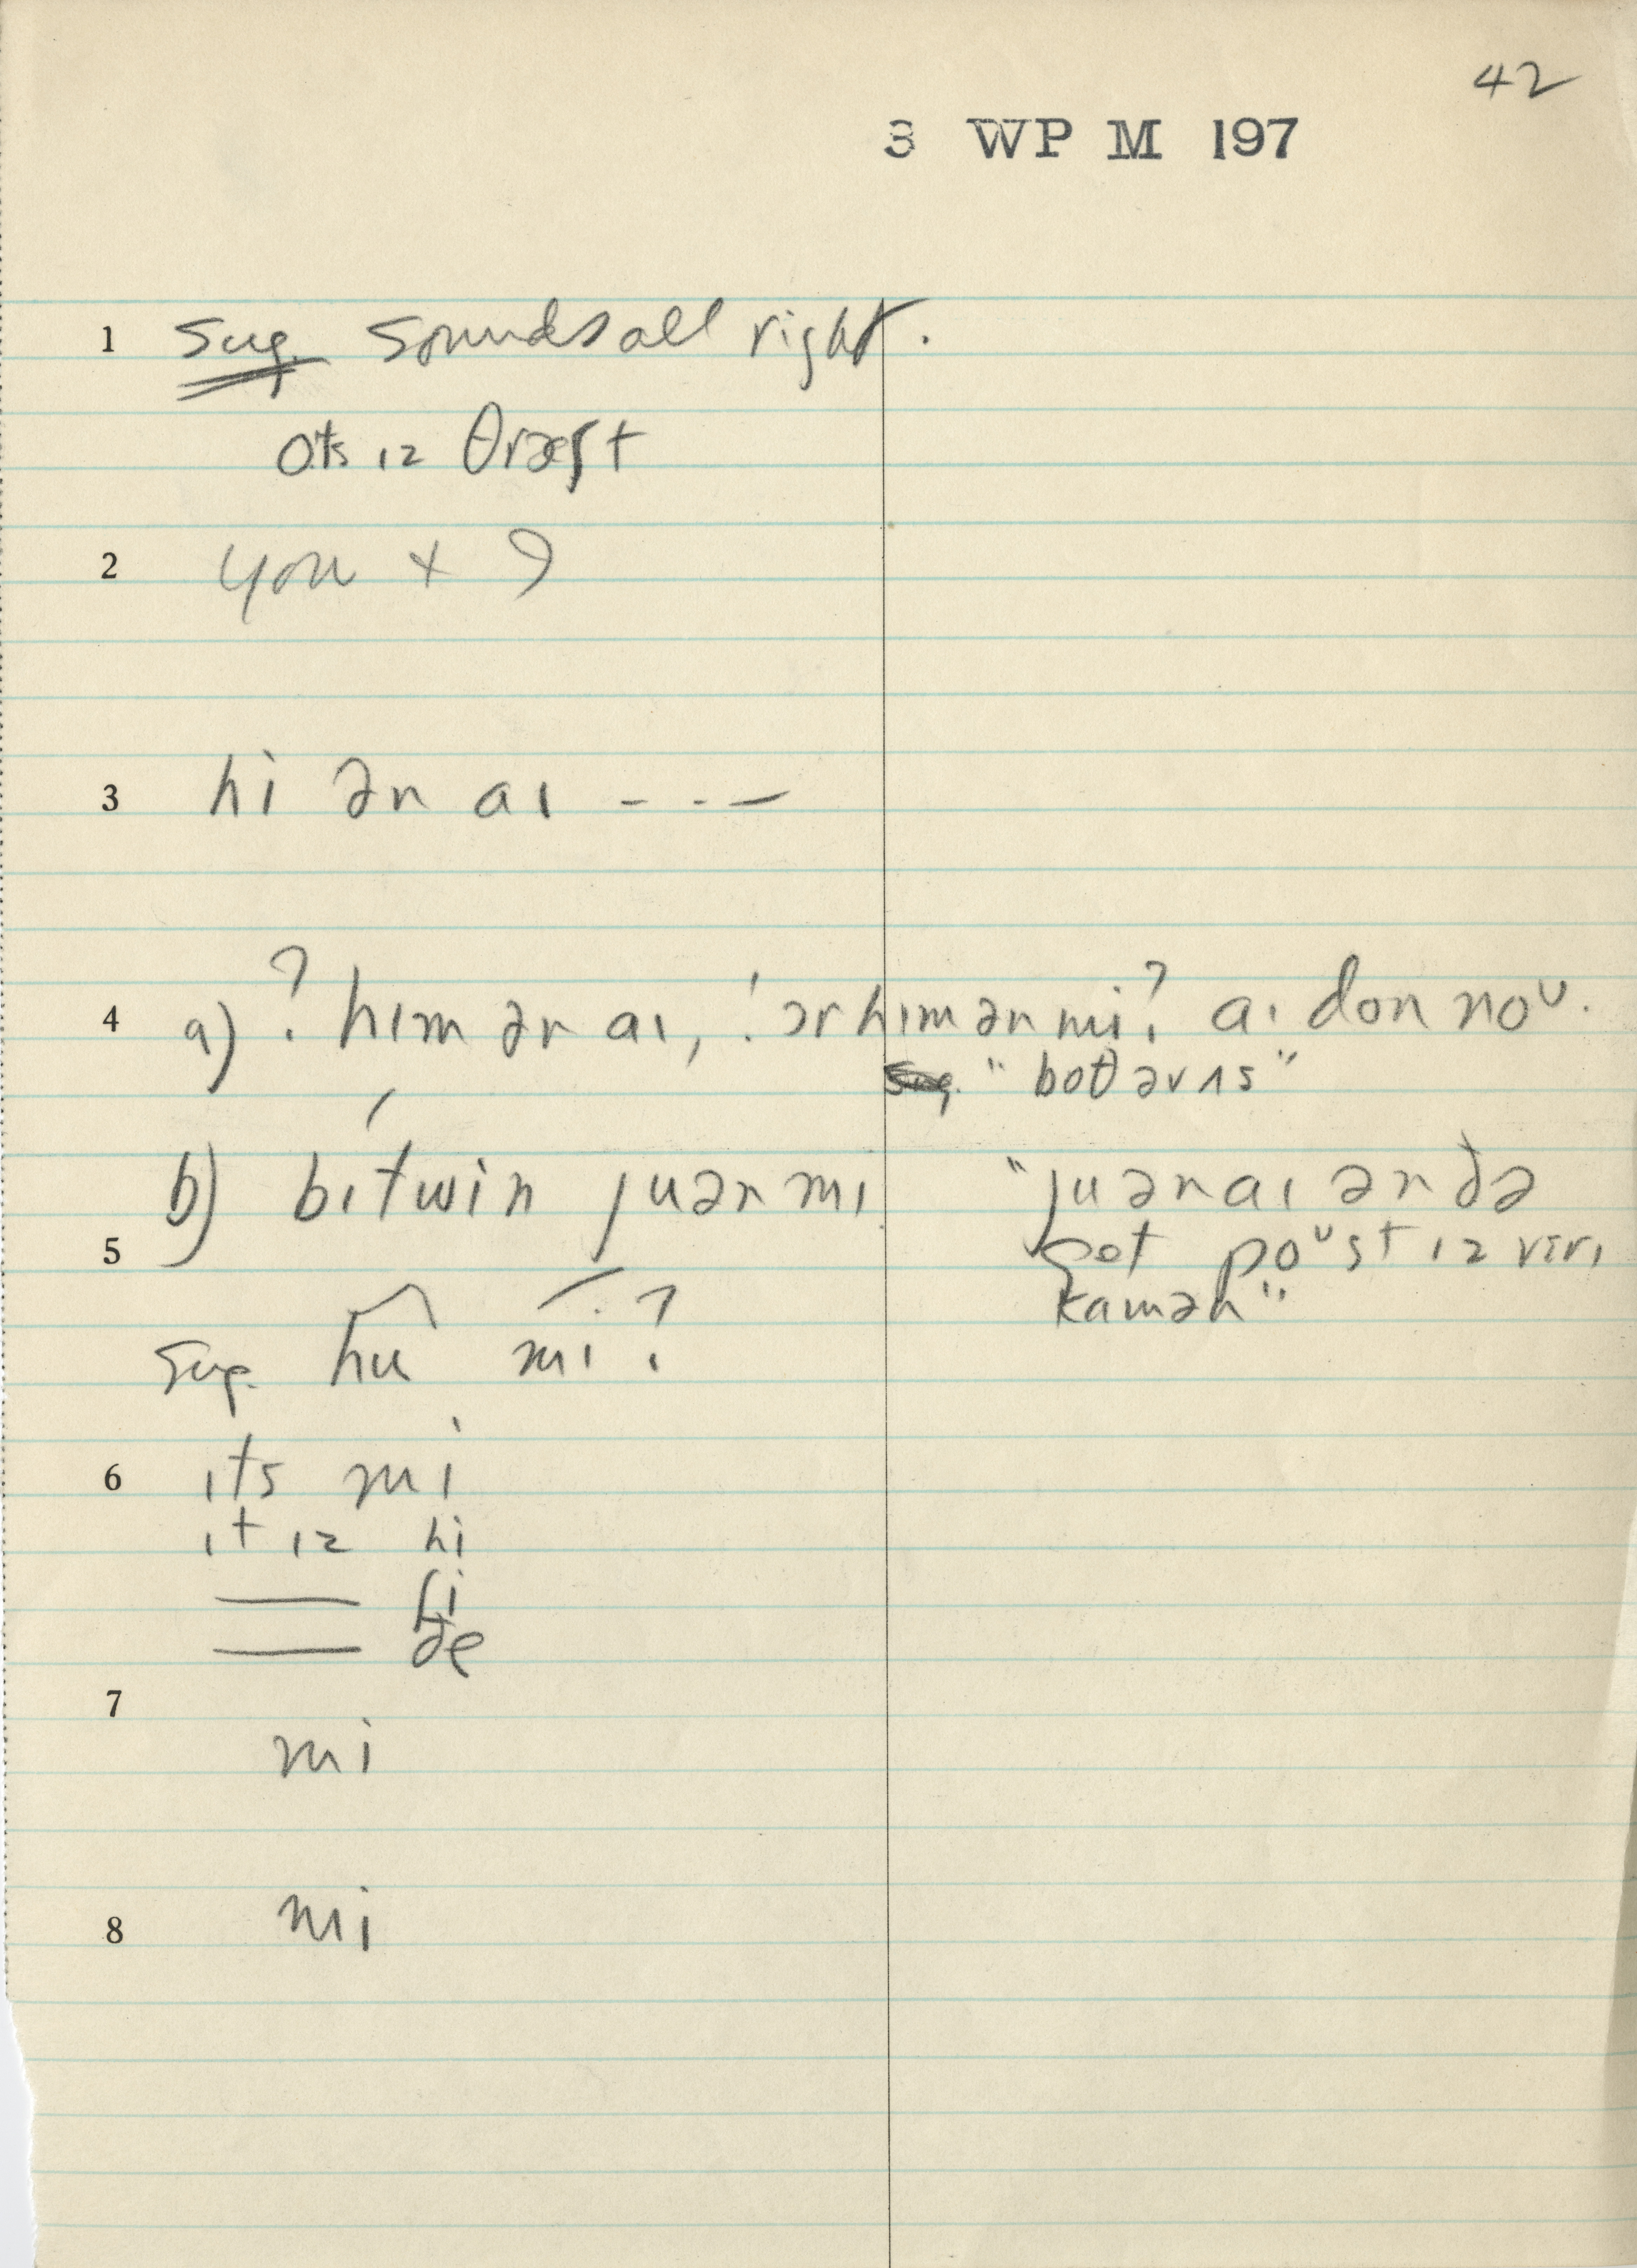 42
3 WP M 197
1 Sug. Sounds all right.
ots ɪz θræʃt
2 you +
3 hi ən aɪ - - -
4 a) ? hɪm ər aɪ, ! ər hɪm ən mi? aɪ don noᴜ.
"boθ əv ʌs"
b) bɪtwin ju ən mi "ju ən aɪ ən ðə
5 poᴜst ɪz vɛrɪ
kamən"
Sug. hu mi?
6 ɪts mi
ɪt ɪz hi
—— ʃi
—— ðe
7
mi
8 mi